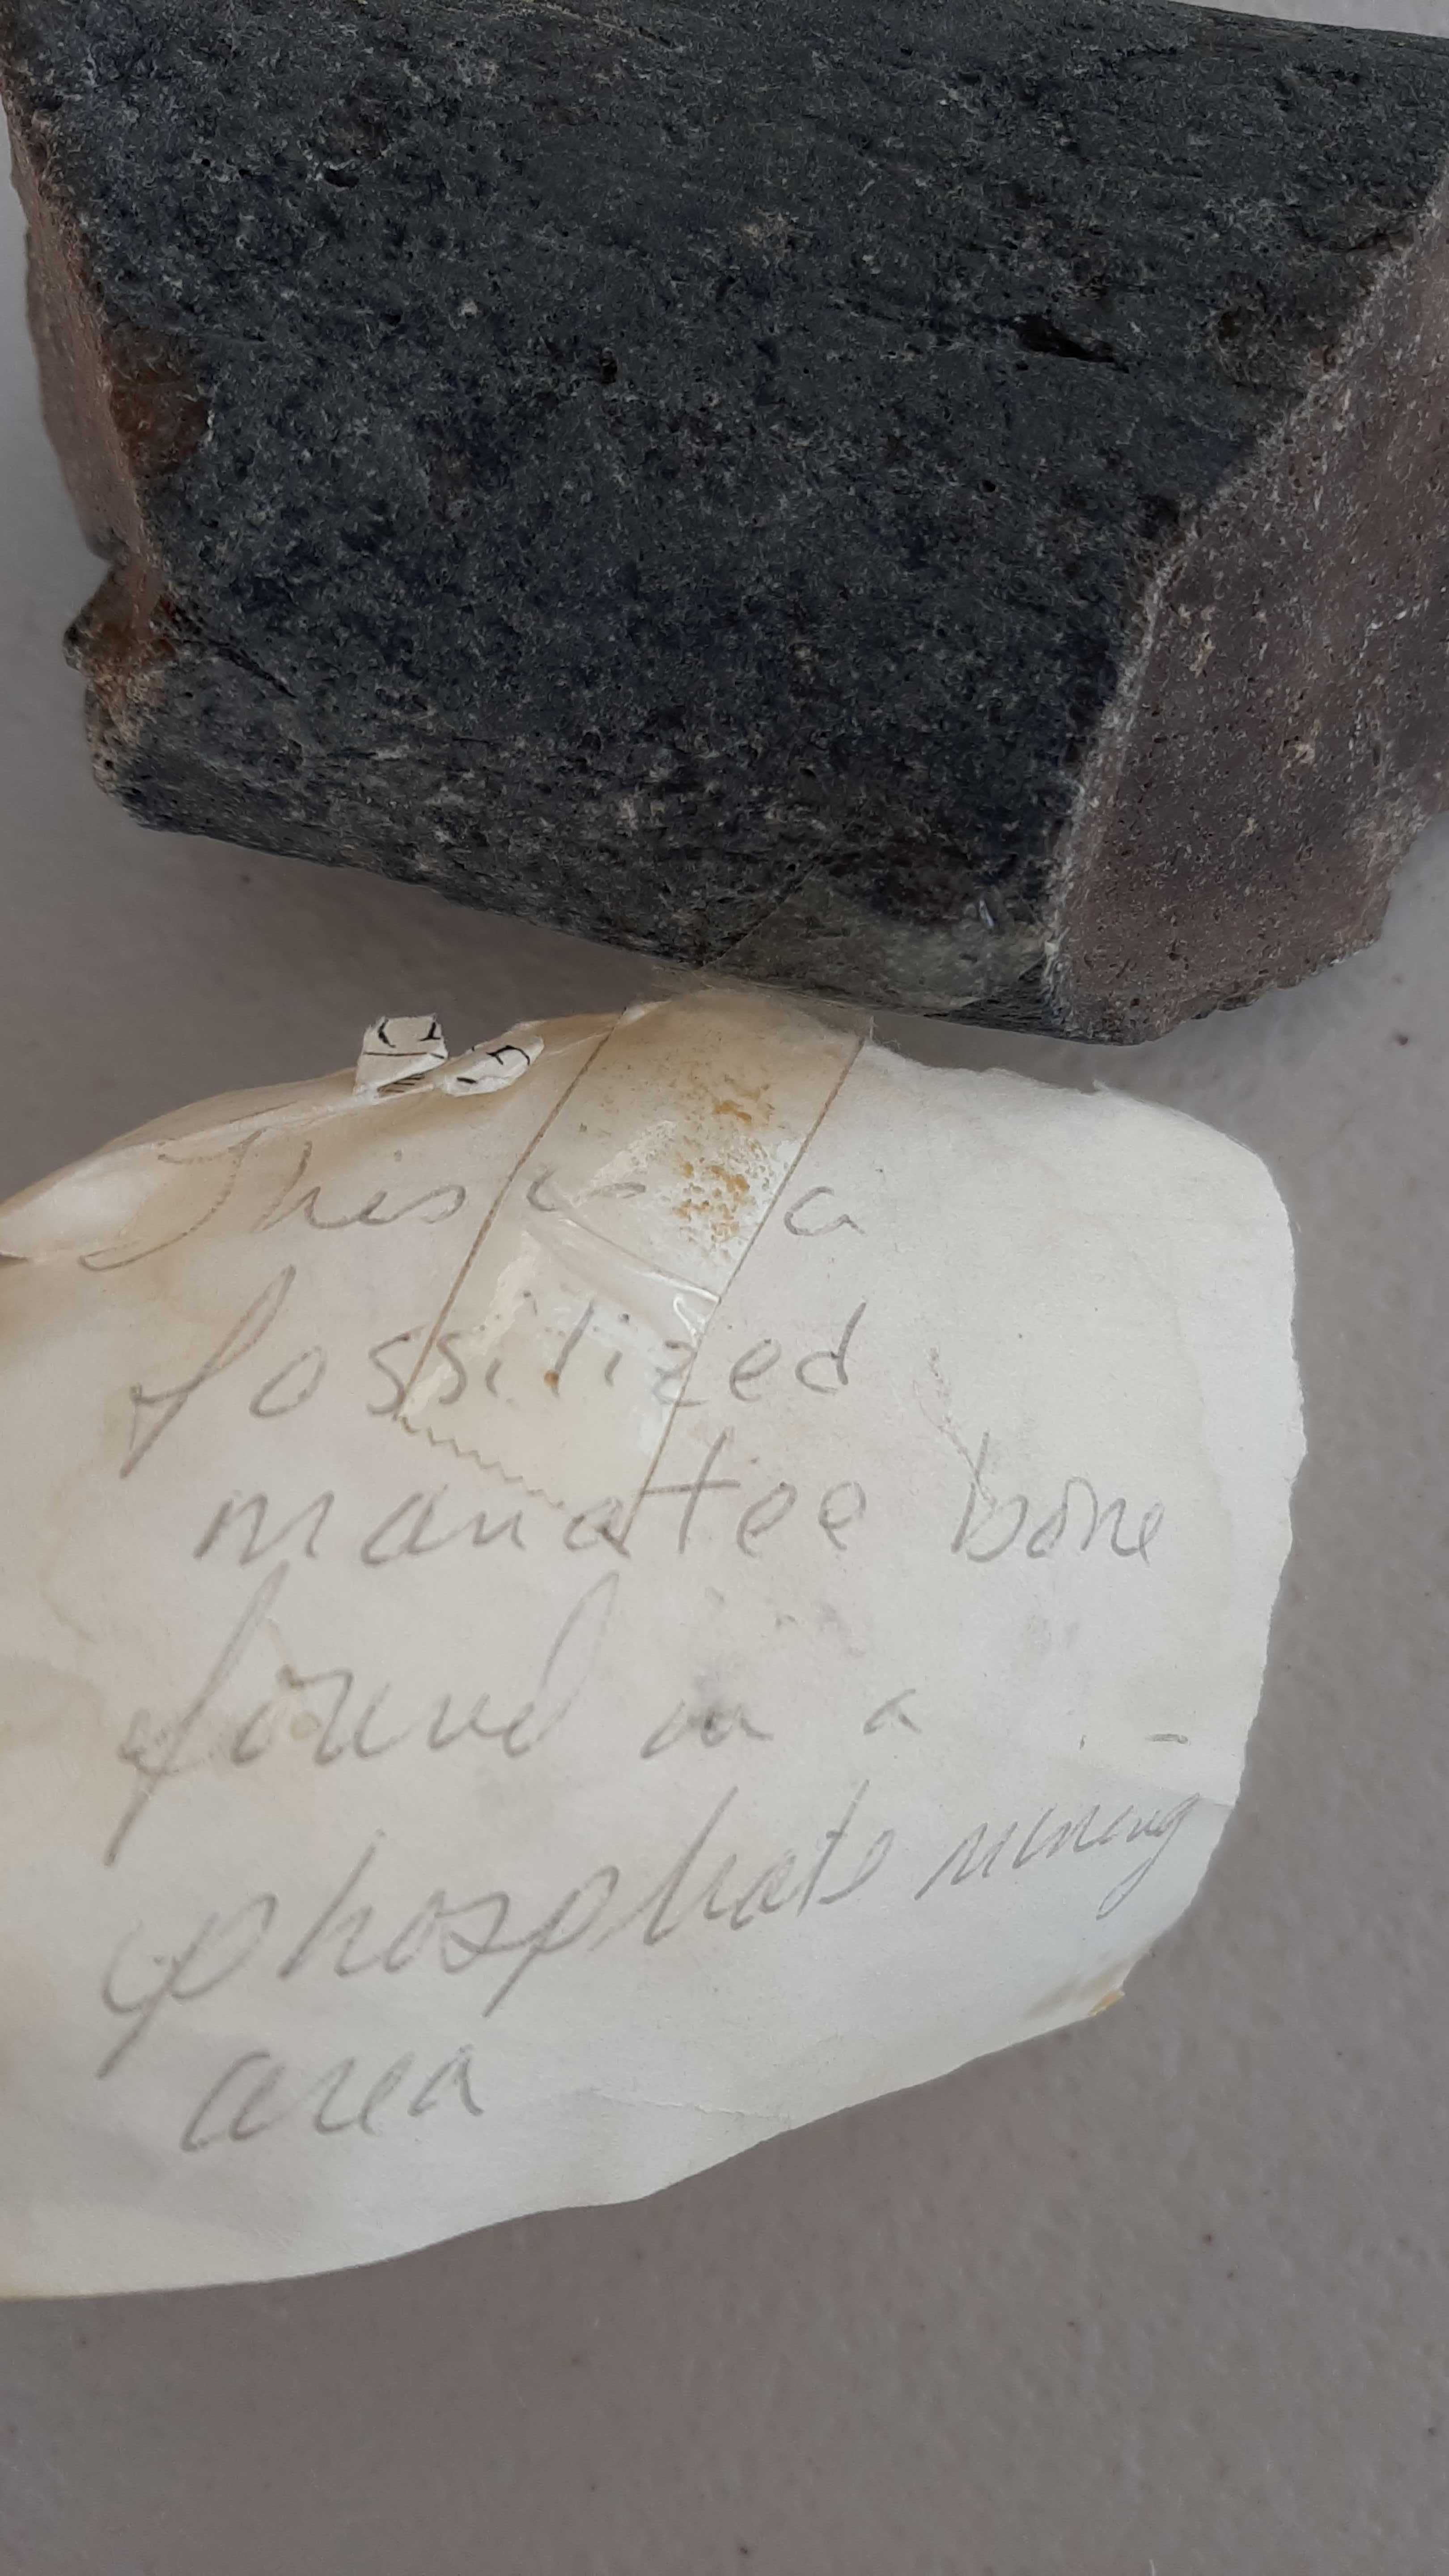 This is a
fossilized
manatee bone
found in a
phosphate mining
area